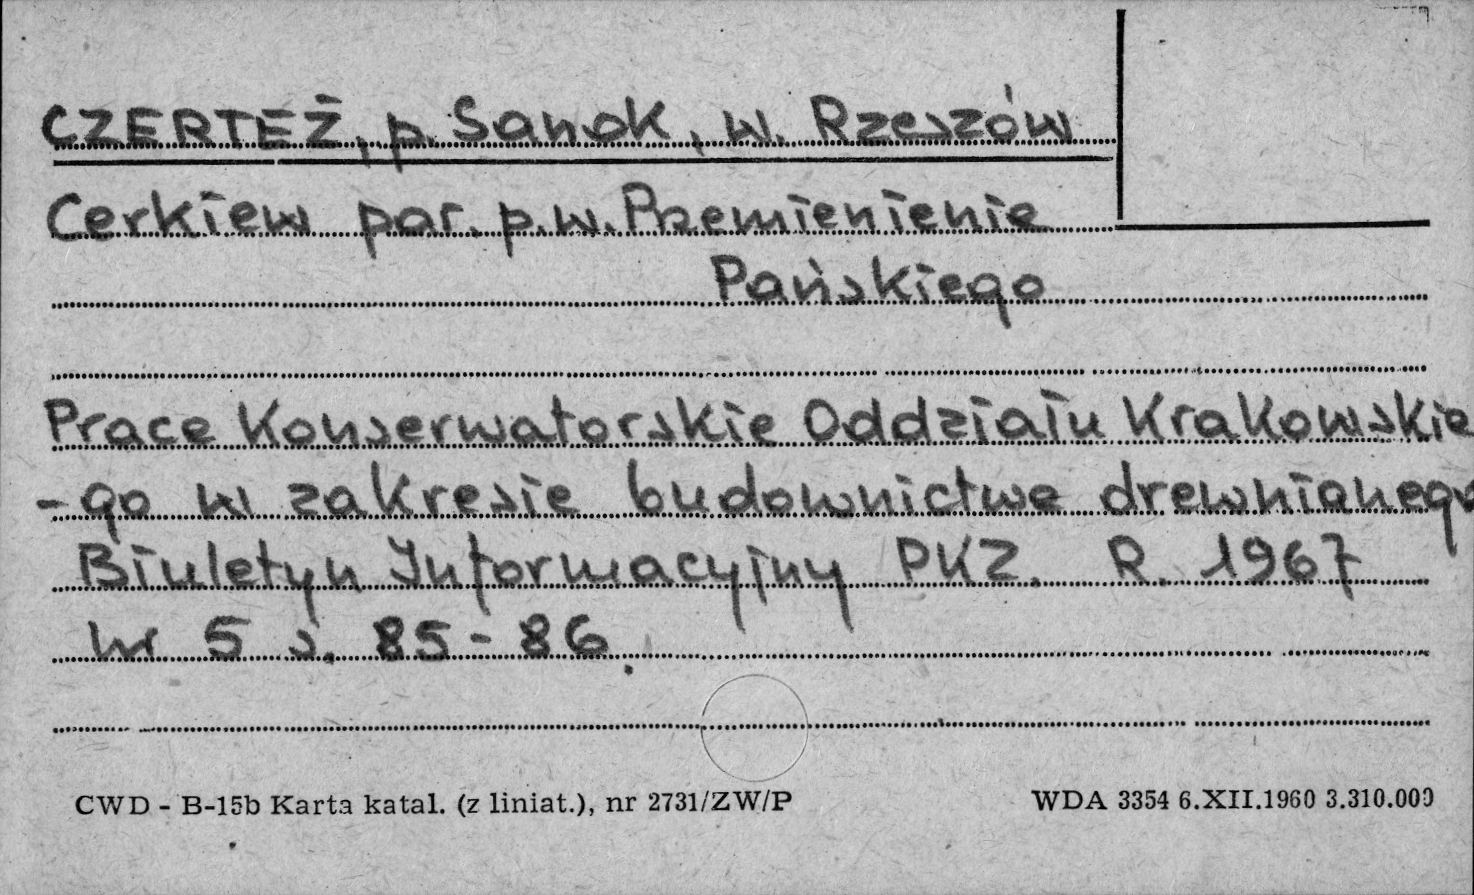 CZERTEŻ, p. Sanok, w. Rzeszów
Cerkiew par. p.w. Przemienienie
Pańskiego
Prace Konserwatorskie Oddziału Krakowskie
-go w zakresie budownictwa drewnianego
Biuletyn Informacyjny PKZ. R. 1967
nr 5 s. 85-86.
CWD - B-15b Karta katal. (z liniat.), nr 2731/ZW/P
WDA 3354 6.XII.1960 3.310.000